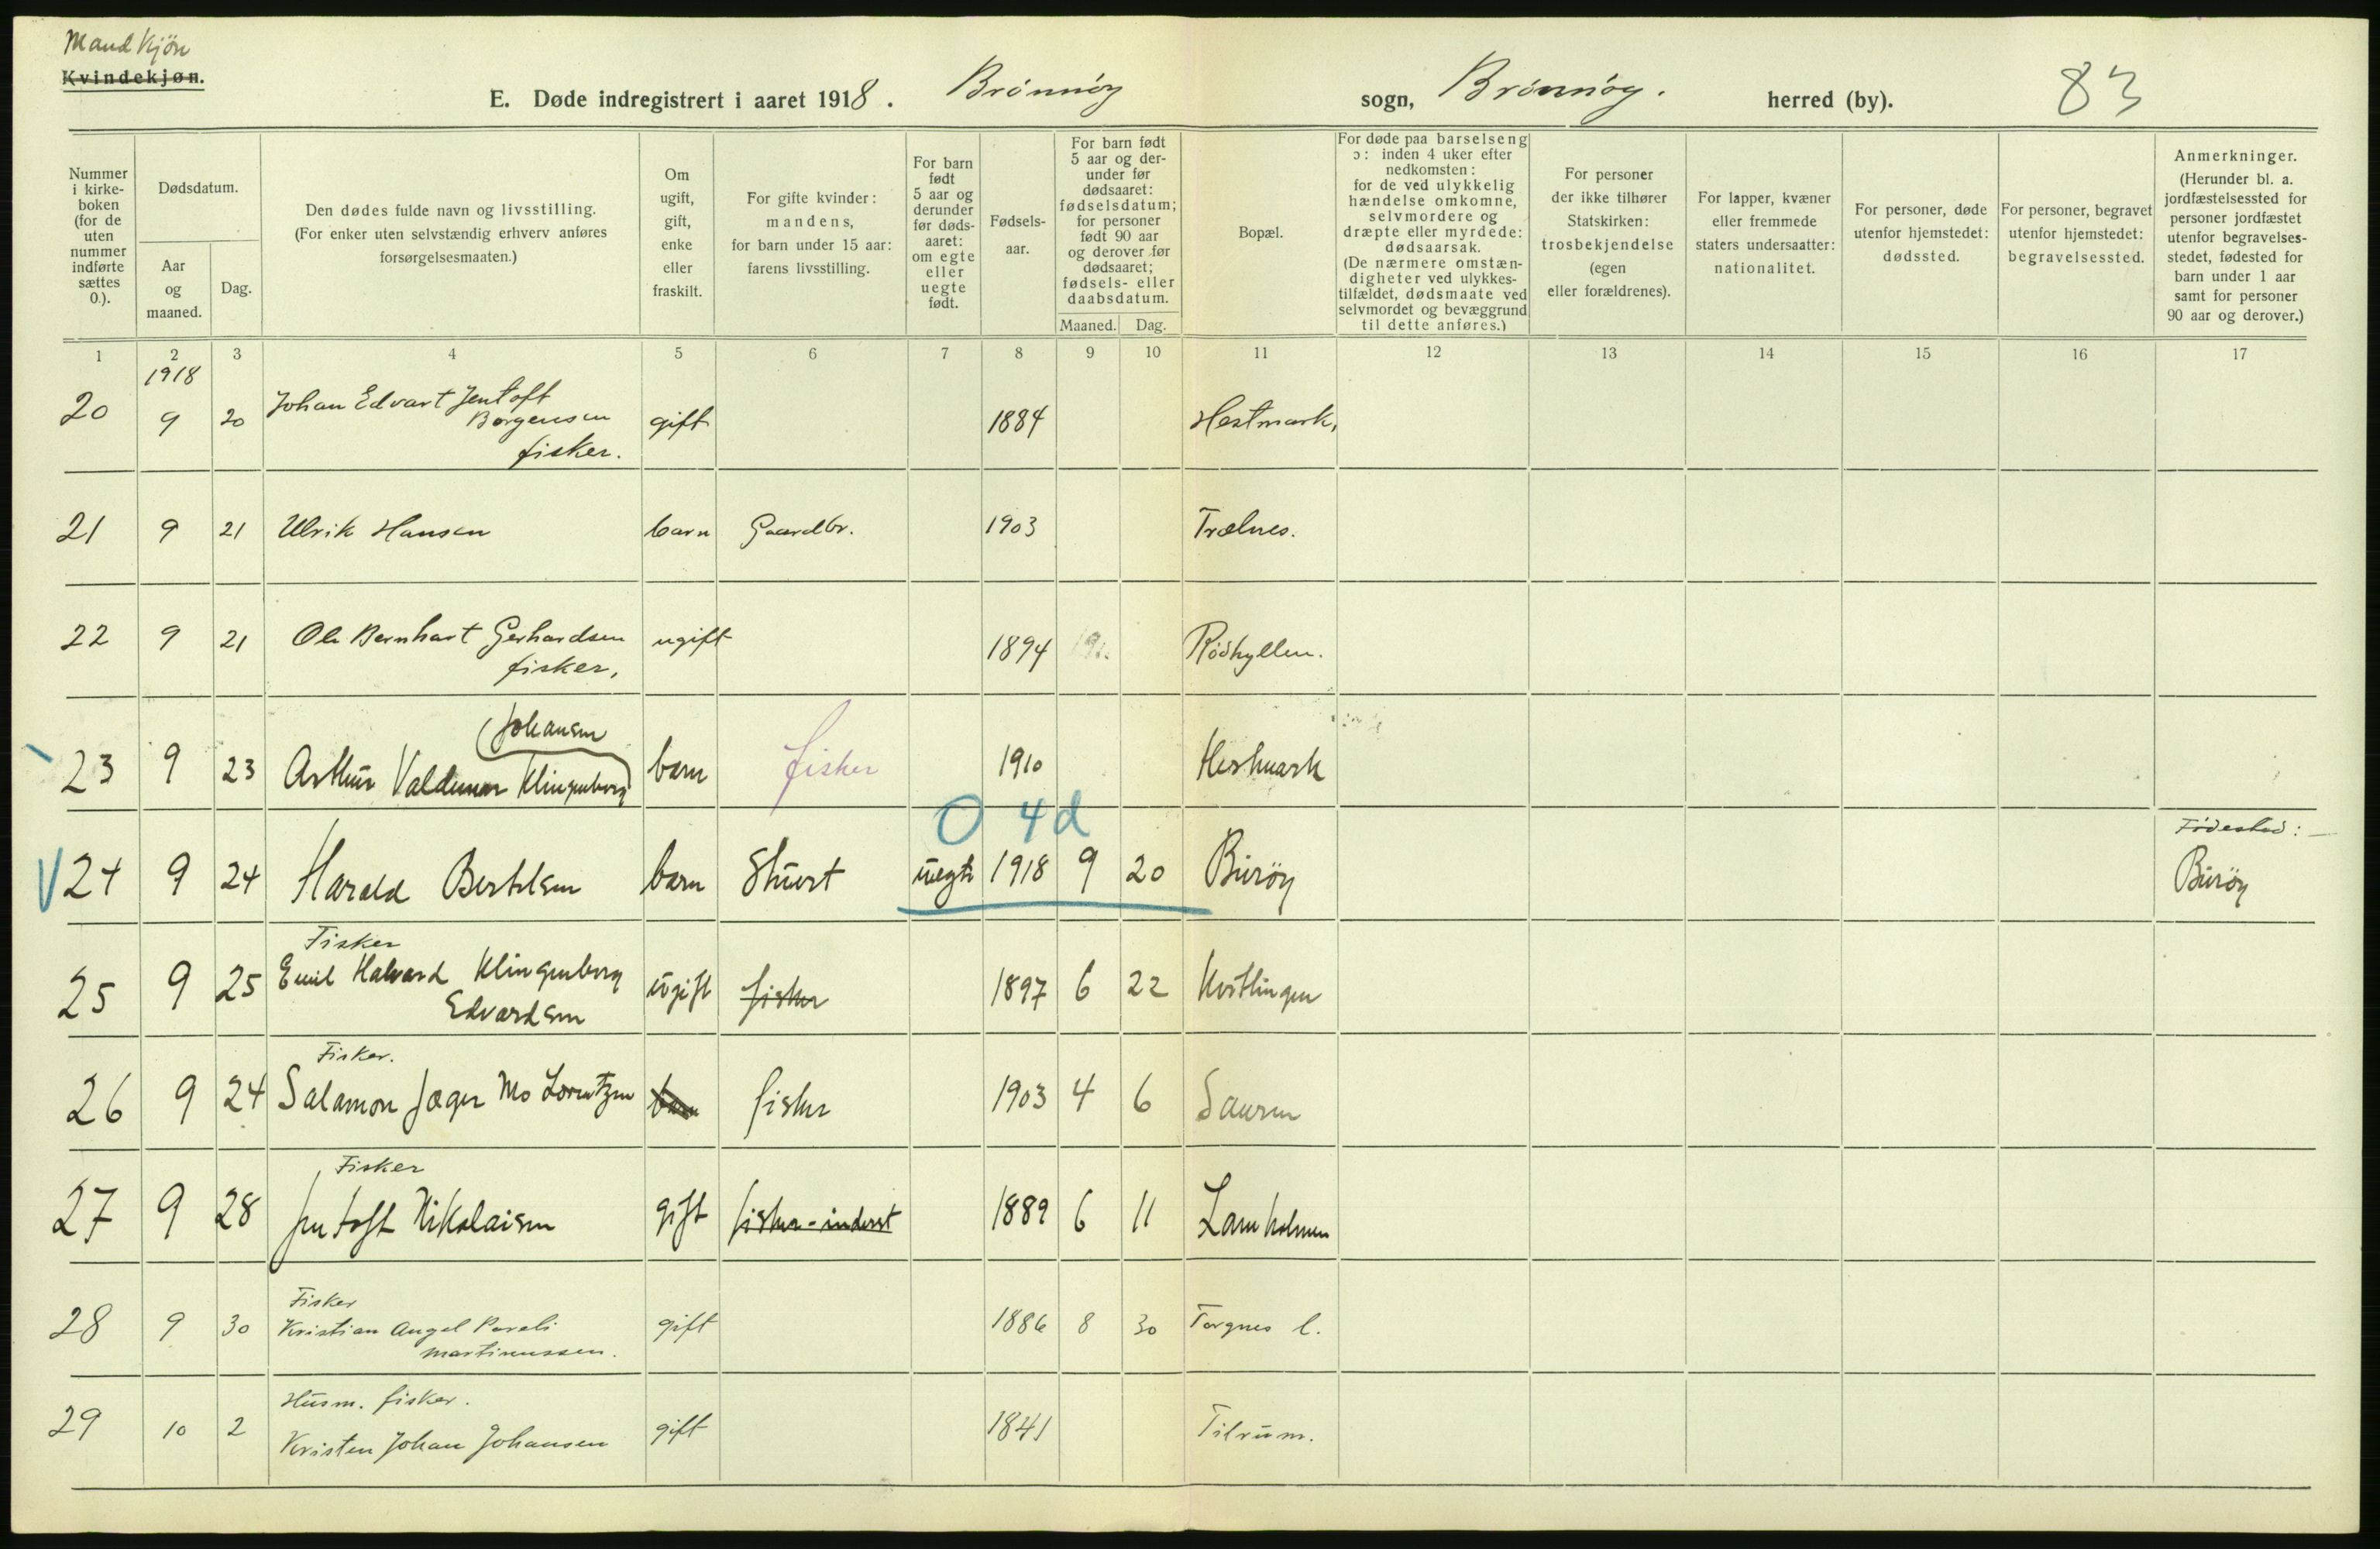 Mandkjøn
Kvindekjøn.
E. Døde indregistrert i aaret 1918. Brönnöy sogn, Brönnöy. herred (by). 83
Nummer i kirkeboken (for de uten nummer indførte sættes 0.).
Dødsdatum.
Aar og maaned.
Dag.
Den dødes fulde navn og livsstilling.
(For enker uten selvstændig erhverv anføres forsørgelsesmaaten.)
Om ugift, gift, enke eller fraskilt.
For gifte kvinder: mandens, for barn under 15 aar: farens livsstilling.
For barn født 5 aar og derunder før dødsaaret: om egte eller uegte født.
Fødselsaar.
For barn født 5 aar og derunder før dødsaaret: fødselsdatum; for personer født 90 aar og derover før dødsaaret; fødsels- eller daabsdatum.
Maaned. Dag.
Bopæl.
For døde paa barselseng ɔ: inden 4 uker efter nedkomsten: for de ved ulykkelig hændelse omkomne, selvmordere og dræpte eller myrdede: dødsaarsak. (De nærmere omstændigheter ved ulykkestilfældet, dødsmaate ved selvmordet og bevæggrund til dette anføres.)
For personer der ikke tilhører Statskirken: trosbekjendelse (egen eller forældrenes).
For lapper, kvæner eller fremmede staters undersaatter: nationalitet.
For personer, døde utenfor hjemstedet: dødssted.
For personer, begravet utenfor hjemstedet: begravelsessted.
Anmerkninger. (Herunder bl. a. jordfæstelsessted for personer jordfæstet utenfor begravelsesstedet, fødested for barn under 1 aar samt for personer 90 aar og derover.)
1 2 3 4 5 6 7 8 9 10 11 12 13 14 15 16 17
1918
20 9 20 Johan Edvart Jentoft Borgensen fisker. gift 1884 Hestmark.
21 9 21 Ulrik Hansen barn Gaardbr. 1903 Trælnes.
22 9 21 Ole Bernhart Gerhardsen fisker. ugift 1894 Rödhyllen.
23 9 23 Arthur Valdemar Klingenberg (Johansen barn fisker 1910 Hestmark
O 4d
24 9 24 Harald Bertelsen barn uegte 1918 9 20 Buröy Fødested: Buröy
25 9 25 Fisker Emil Halvard Klingenberg Edvardsen ugift fisker 1897 6 22 
26 9 24 Fisker. Salamon Jæger Mo Lorentzen barn fisker 1903 4 6 Sauren
27 9 28 Fisker Jentoft Nikolaisen gift fisker-inderst 1889 6 11 Lamholmen
28 9 30 Fisker Kristian Angel Pareli Martinussen. gift 1886 8 30 Torgnes l.
29 10 2 Husm. fisker. Kristen Johan Johansen gift 1841 Tilrum.